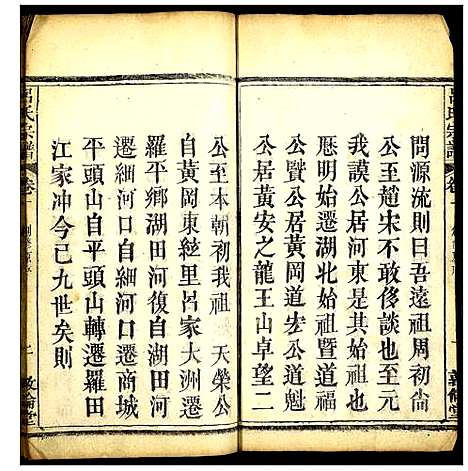 問源流則曰吾遠祖周初尙
公至趙宋不敢侈談也至元
我謨公居河東是其始祖也
歷明始遷湖北始祖暨道福
公賢公曁黃岡道宏公道魁
公居黃安之龍王山卓望二
公至本朝初我祖 天榮公
自黃岡東絃里呂家大洲遷
羅平鄉湖田河復自湖田河
遷細河口自細河口遷商城
平頭山自平頭山轉遷羅田
江家冲今已九世矣則
呂氏宗譜
卷一
二
敦倫堂